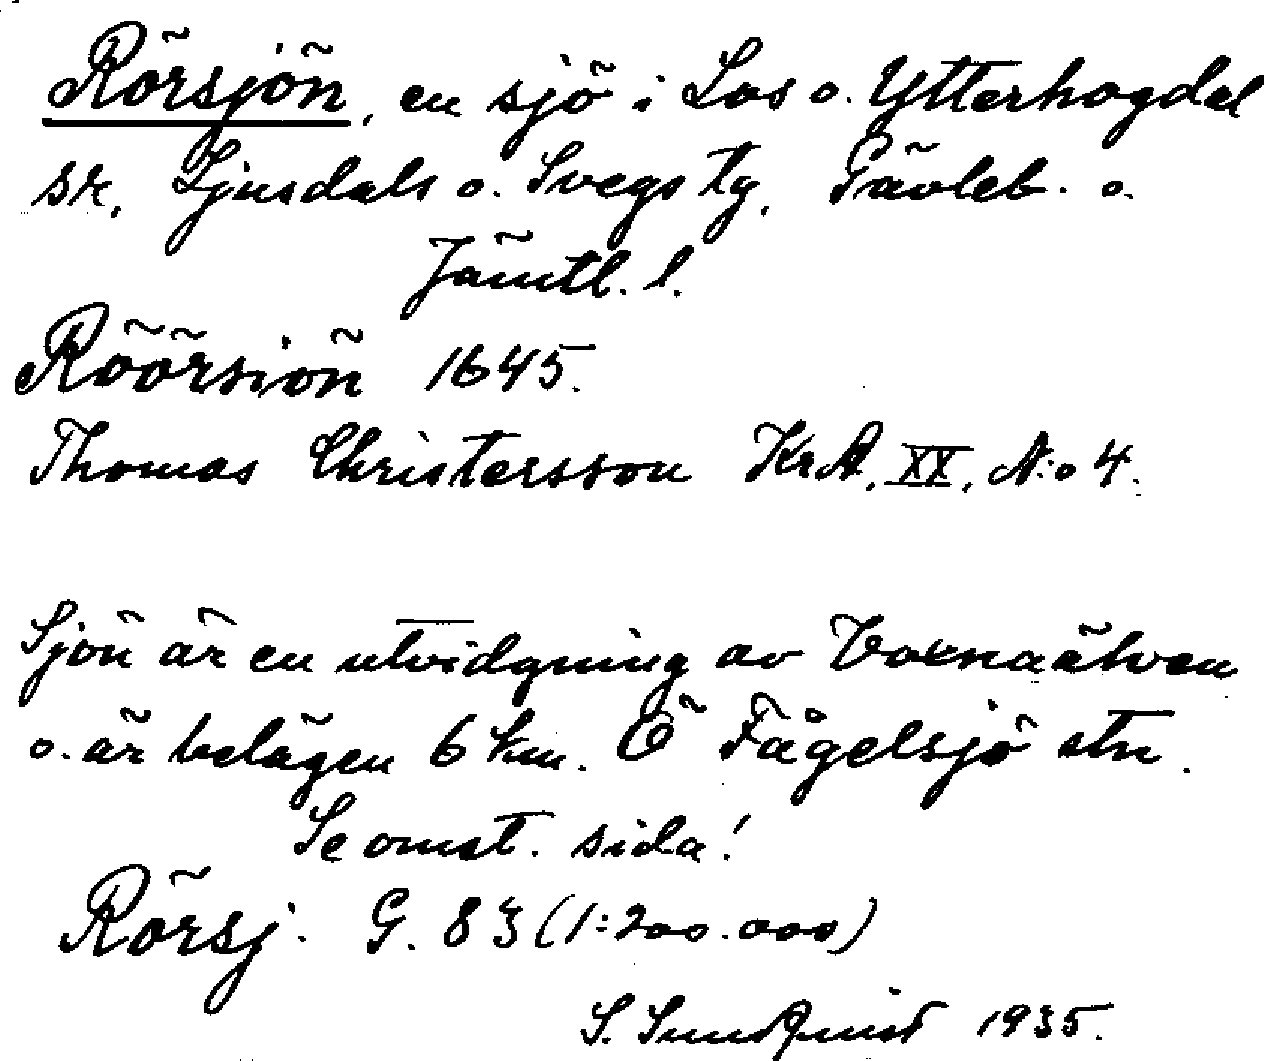 Rörsjön, en sjö i Los o. Ytterhogdal
sn, Ljusdals o. Svegs tg, Gävleb. o.
Jämtl. l.
Röörsiön 1645.
Thomas Christersson KrA. XX, N:o 4.
Sjön är en utvidgning av Voxnaälven
o. är belägen 6 km. Ö Fågelsjö stn.
Se omst. sida!
Rörsj. G. 83 (1:200.000)
S. Sundquist 1935.